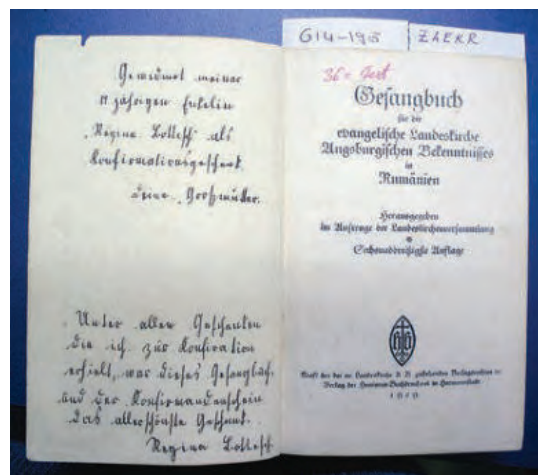 Gewidmet meiner
11 jährigen Enkelin
„Regina Bottesch" als
Konfirmationsgeschenk.
Deine „Großmutter.
„Unter allen Geschenken
die ich zur Konfiration
erhielt, war dieses Gesangbuch
und der Konfirmandenschein
das allerschönste Geschenk.
Regina Bottesch.
G14-198
ZAEKR
Gesangbuch
für die
evangelische Landeskirche
Augsburgischen Bekenntnisses
in
Rumänien
Herausgegeben
im Auftrage der Landeskirchenversammlung
Sechsunddreißigste Auflage
der ev. Landeskirche A. B. zustehenden Verlagsrechtes im
Verlag der Honterus-Buchdruckerei in Hermannstadt